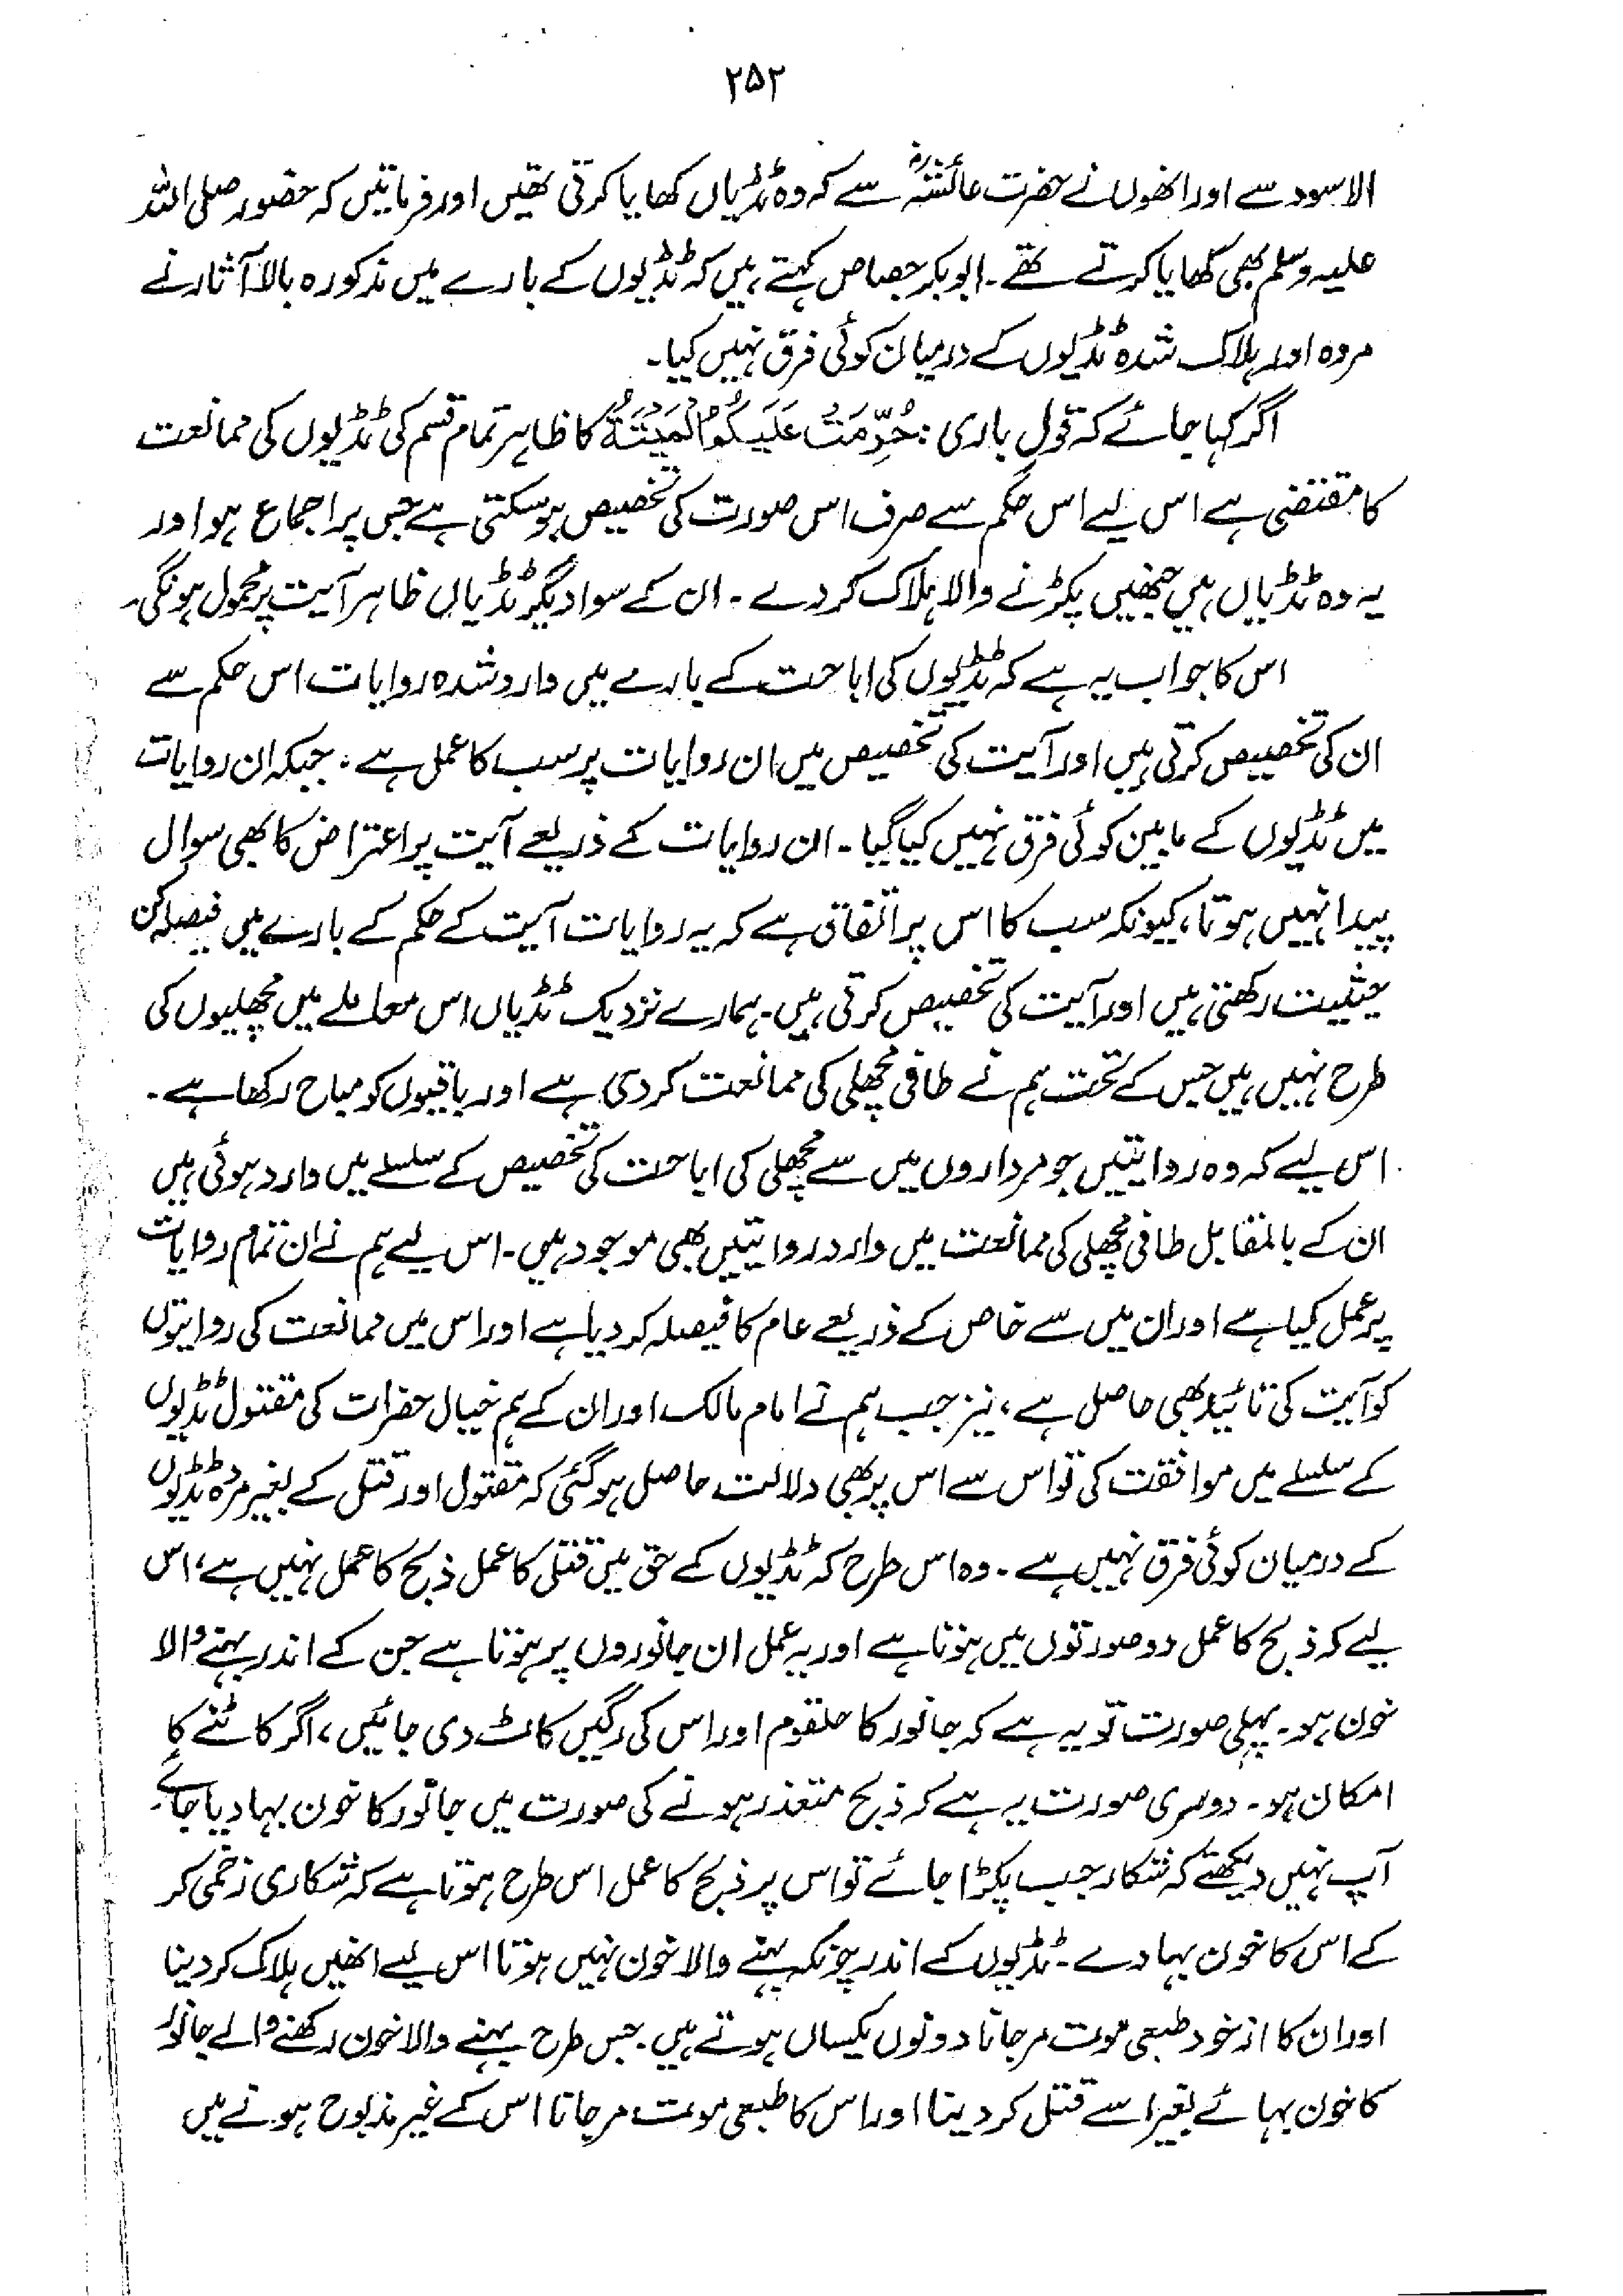 ۲۵۲
الاسود سے اور انھوں نے حضرت عائشہؓ سے کہ وہ ٹڈیاں کھایا کرتی تھیں اور فرماتیں کہ حضور صلی اللہ
علیہ وسلم بھی کھایا کرتے تھے۔ ابوبکر جصاص کہتے ہیں کہ ٹڈیوں کے بارے میں مذکورہ بالا آثار نے
مردہ اور ہلاک شدہ ٹڈیوں کے درمیان کوئی فرق نہیں کیا۔
اگر کہا جائے کہ قول باری : حُرِّمَتْ عَلَيْكُمُ الْمَيْتَةُ کا ظاہر تمام قسم کی ٹڈیوں کی ممانعت
کا مقتضی ہے اس لیے اس حکم سے صرف اس صورت کی تخصیص ہو سکتی ہے جس پر اجماع ہو اور
یہ وہ ٹڈیاں ہیں جنھیں پکڑنے والا ہلاک کر دے۔ ان کے سوا دیگر ٹڈیاں ظاہر آیت پر محمول ہونگی۔
اس کا جواب یہ ہے کہ ٹڈیوں کی اباحت کے بارے میں وارد شدہ روایات اس حکم سے
ان کی تخصیص کرتی ہیں اور آیت کی تخصیص میں ان روایات پر سب کا عمل ہے، جبکہ ان روایات
میں ٹڈیوں کے مابین کوئی فرق نہیں کیا گیا۔ ان روایات کے ذریعے آیت پر اعتراض کا بھی سوال
پیدا نہیں ہوتا، کیونکہ سب کا اس پر اتفاق ہے کہ یہ روایات آیت کے حکم کے بارے میں فیصلہ کن
حیثیت رکھتی ہیں اور آیت کی تخصیص کرتی ہیں۔ ہمارے نزدیک ٹڈیاں اس معاملے میں مچھلیوں کی
طرح نہیں ہیں جس کے تحت ہم نے طافی مچھلی کی ممانعت کر دی ہے اور باقیوں کو مباح رکھا ہے۔
اس لیے کہ وہ روایتیں جو مرداروں میں سے مچھلی کی اباحت کی تخصیص کے سلسلے میں وارد ہوئی ہیں
ان کے بالمقابل طافی مچھلی کی ممانعت میں وارد روایتیں بھی موجود ہیں۔ اس لیے ہم نے ان تمام روایات
پر عمل کیا ہے اور ان میں سے خاص کے ذریعے عام کا فیصلہ کر دیا ہے اور اس میں ممانعت کی روایتوں
کو آیت کی تائید بھی حاصل ہے، نیز جب ہم نے امام مالک اور ان کے ہم خیال حضرات کی مقتول ٹڈیوں
کے سلسلے میں موافقت کی تو اس سے اس پر بھی دلالت حاصل ہو گئی کہ مقتول اور قتل کے بغیر مردہ ٹڈیوں
کے درمیان کوئی فرق نہیں ہے۔ وہ اس طرح کہ ٹڈیوں کے حق میں قتل کا عمل ذبح کا عمل نہیں ہے، اس
لیے کہ ذبح کا عمل دو صورتوں میں ہوتا ہے اور یہ عمل ان جانوروں پر ہوتا ہے جن کے اندر بہنے والا
خون ہو۔ پہلی صورت تو یہ ہے کہ جانور کا حلقوم اور اس کی رگیں کاٹ دی جائیں، اگر کاٹنے کا
امکان ہو۔ دوسری صورت یہ ہے کہ ذبح متعذر ہونے کی صورت میں جانور کا خون بہا دیا جائے۔
آپ نہیں دیکھتے کہ شکار جب پکڑا جائے تو اس پر ذبح کا عمل اس طرح ہوتا ہے کہ شکاری زخمی کر
کے اس کا خون بہا دے۔ ٹڈیوں کے اندر چونکہ بہنے والا خون نہیں ہوتا اس لیے انھیں ہلاک کر دینا
اور ان کا از خود طبعی موت مر جانا دونوں یکساں ہوتے ہیں۔ جس طرح بہنے والا خون رکھنے والے جانور
کا خون بہائے بغیر اسے قتل کر دینا اور اس کا طبعی موت مر جانا اس کے غیر مذبوح ہونے میں